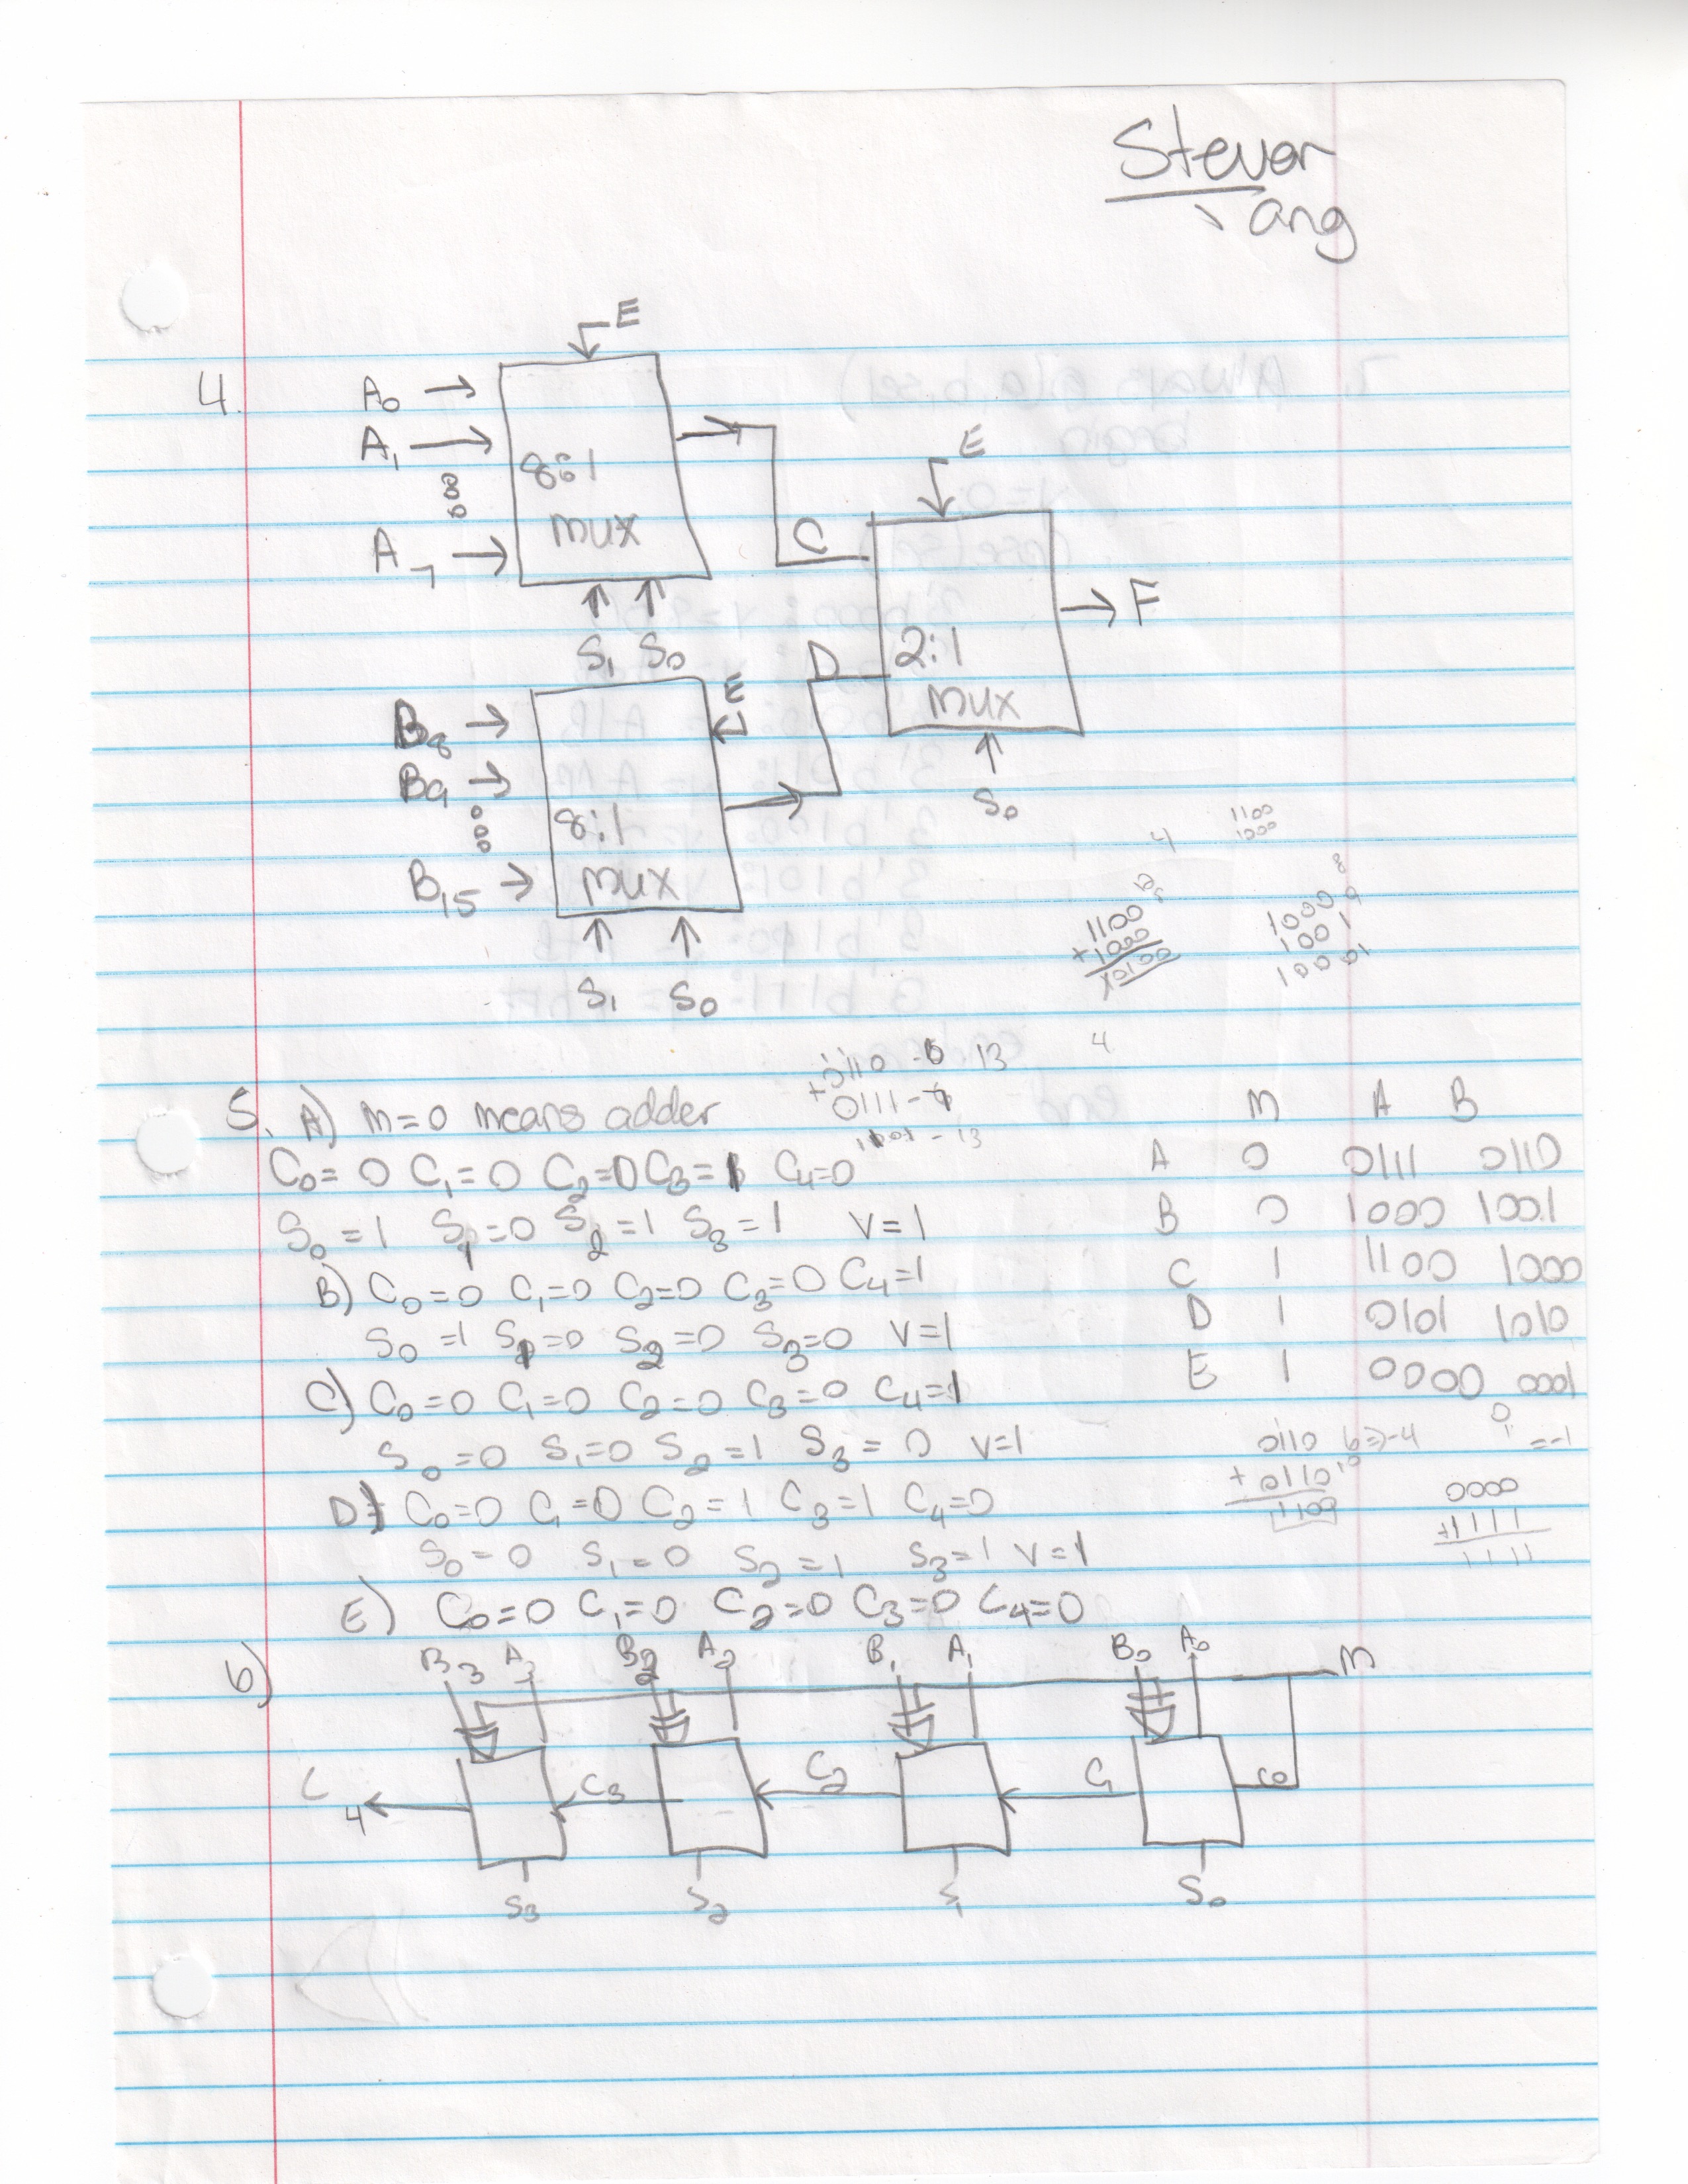 Stevor
ang
4.
E
A0
A1
A7
8:1
mux
S1 S0
C
E
2:1
mux
F
S0
D
E
B8
B9
B15
8:1
mux
S1 S0
4
1100
1000
1100
+1000
10100
8
1000 9
1001
10001
4
0110 - 6 13
+0111 - 7
1101 - 13
5. A) M=0 means adder
C0=0 C1=0 C2=0 C3=1 C4=0
S0=1 S1=0 S2=1 S3=1 V=1
B) C0=0 C1=0 C2=0 C3=0 C4=1
S0=1 S1=0 S2=0 S3=0 V=1
C) C0=0 C1=0 C2=0 C3=0 C4=1
S0=0 S1=0 S2=1 S3=0 V=1
D) C0=0 C1=0 C2=1 C3=1 C4=0
S0=0 S1=0 S2=1 S3=1 V=1
E) C0=0 C1=0 C2=0 C3=0 C4=0
M A B
A 0 0111 0110
B 0 1000 1001
C 1 1100 1000
D 1 0101 1010
E 1 0000 0001
0110 6=>-4
+0110
1100
0
1 =-1
0000
+1111
1111
6)
B3 A3 B2 A2 B1 A1 B0 A0 M
C4 C3 C2 C1 C0
S3 S2 S1 S0